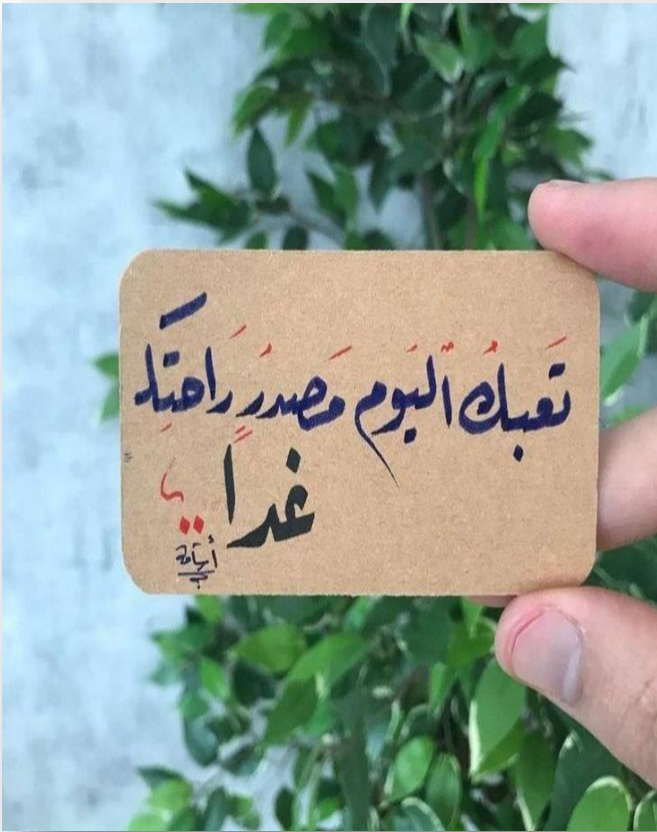 تَعبكُ اليَوم مَصدرُ رَاحتِكَ
غداً